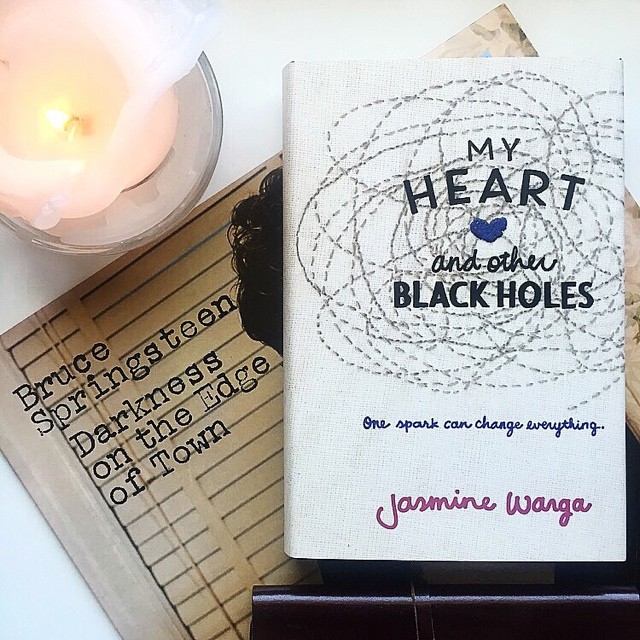 MY
HEART
and other
BLACK HOLES
One spark can change everything.
Jasmine Warga
Bruce
Springsteen
Darkness
on the Edge
of Town